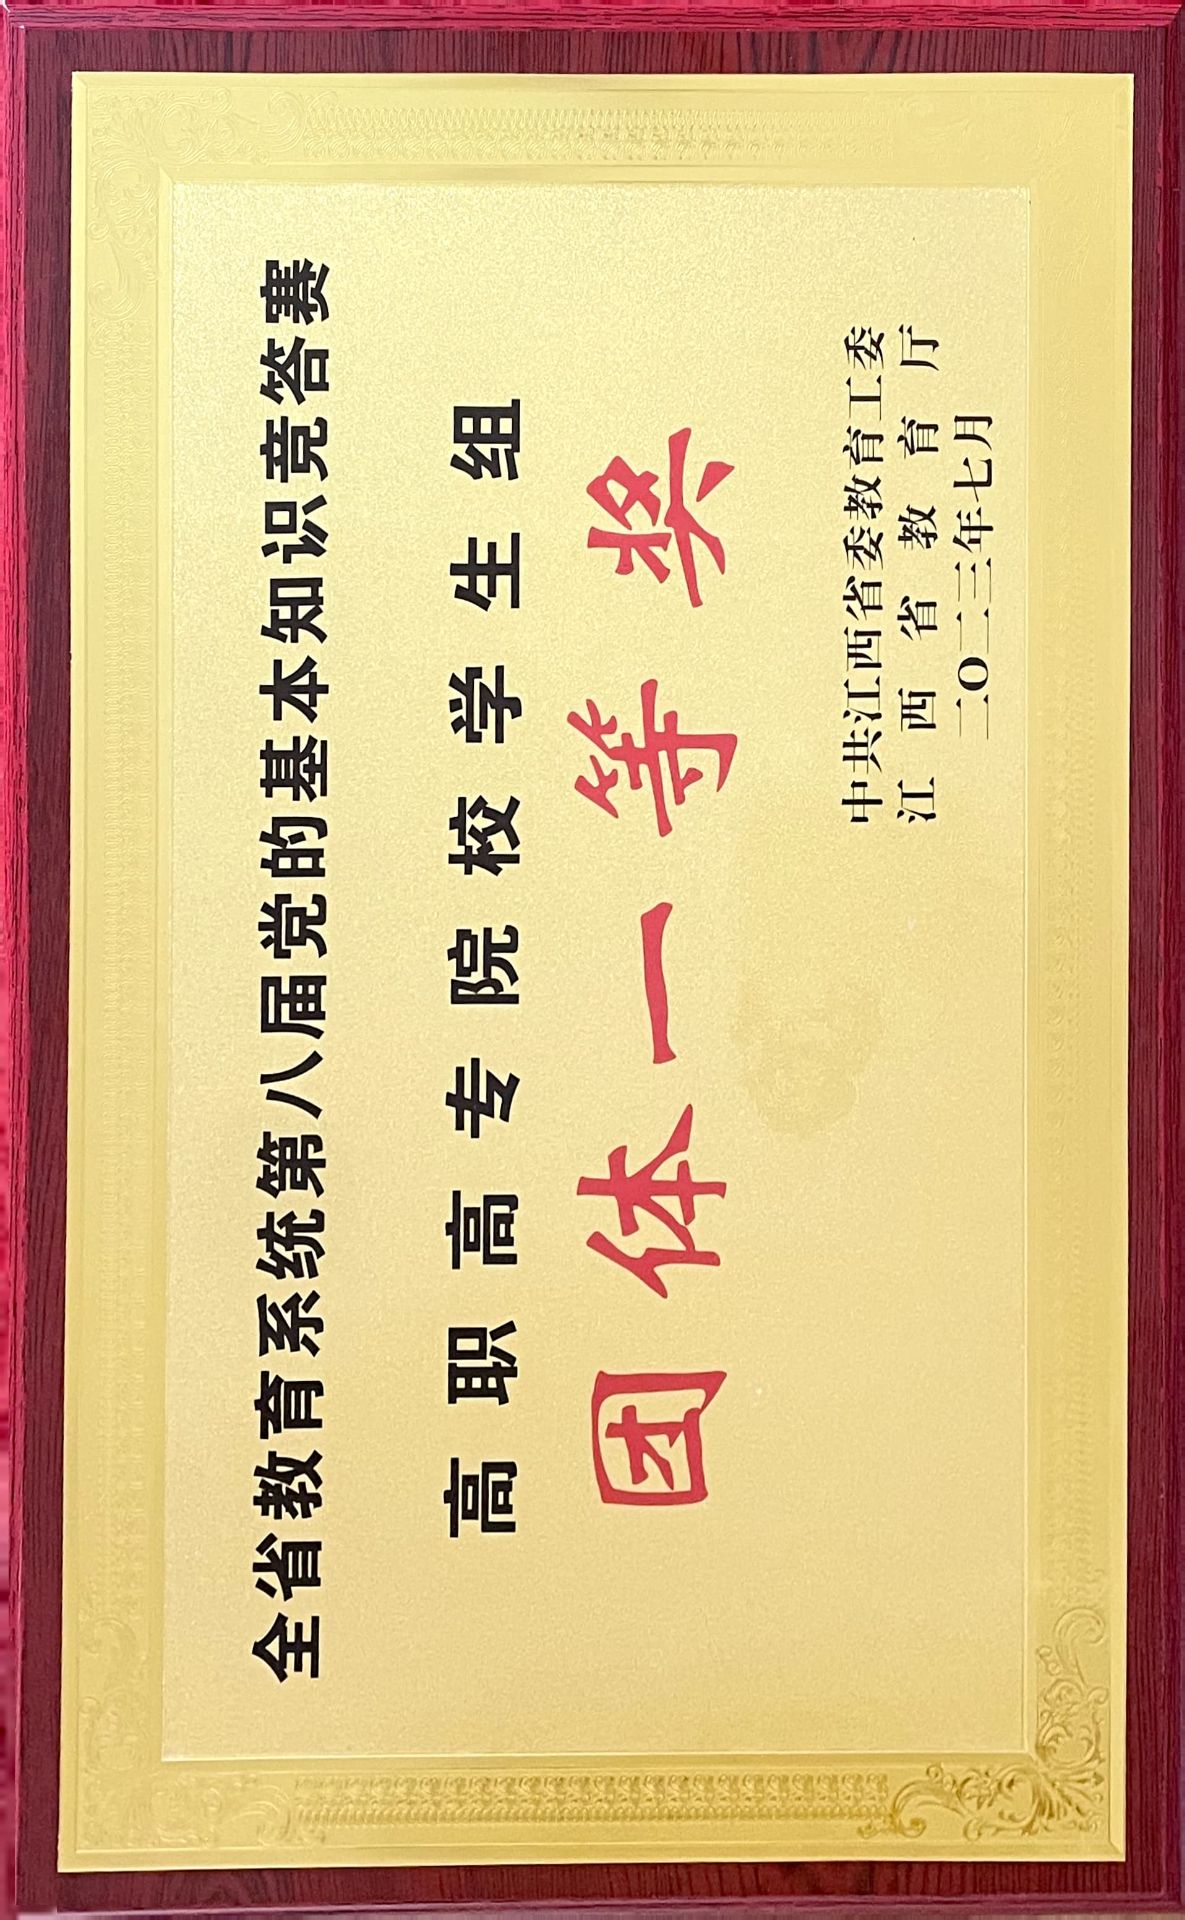 全省教育系统第八届党的基本知识竞答赛
高职高专院校学生组
团体一等奖
中共江西省委教育工委
江西省教育厅
二〇二三年七月